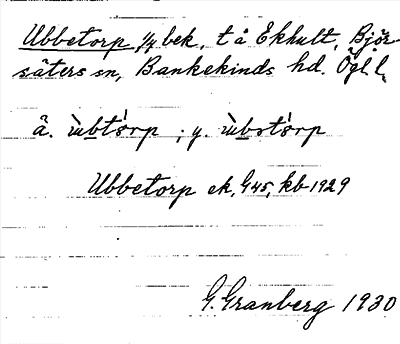 Ubbetorp 1/4 bek, t å Ekhult, Björ-
säters sn, Bankekinds hd. Ögl l,
ä. ùbtórp ; y. ùbstórp
Ubbetorp ek, G 45, kb 1929
G. Granberg 1930